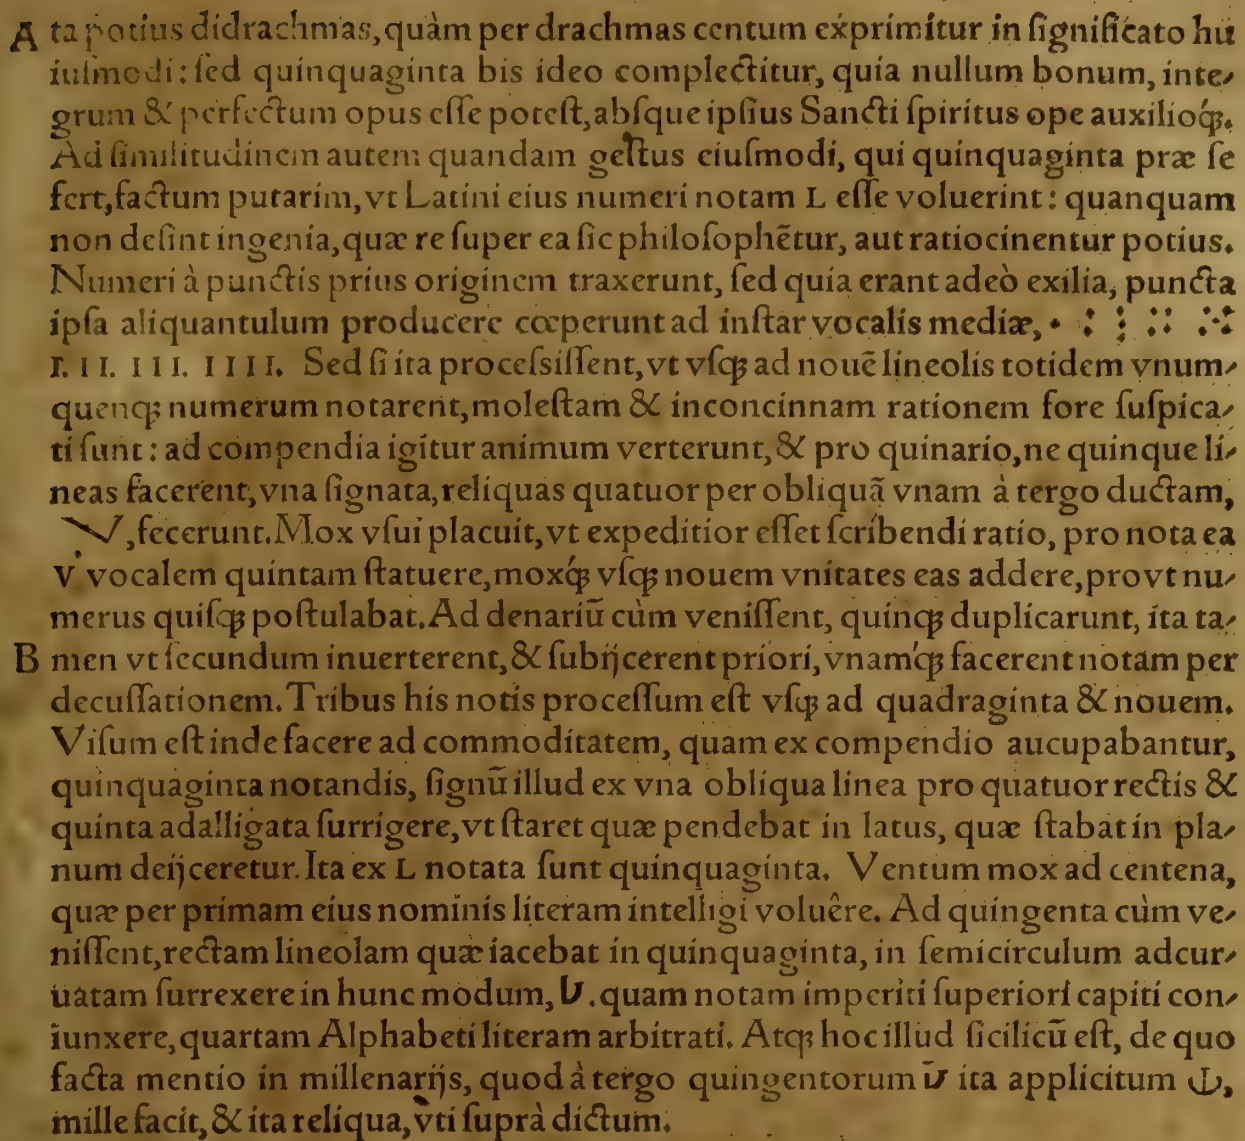 A ta potius didrachmas, quàm per drachmas centum exprimitur in ſignificato hu
iuſmodi: ſed quinquaginta bis ideo complectitur, quia nullum bonum, inte⸗
grum & perfectum opus eſſe poteſt, abſque ipſius Sancti ſpiritus ope auxilioq́ꝫ.
Ad ſimilitudinem autem quandam geſtus eiuſmodi, qui quinquaginta præ ſe
fert, factum putarim, vt Latini eius numeri notam L eſſe voluerint: quanquam
non deſint ingenia, quæ re ſuper ea ſic philoſophētur, aut ratiocinentur potius.
Numeri à punctis prius originem traxerunt, ſed quia erant adeò exilia, puncta
ipſa aliquantulum producere cœperunt ad inſtar vocalis mediæ, • : ⋮ :: ⁙
I. II. III. IIII. Sed ſi ita proceſsiſſent, vt vſqꝫ ad nouē lineolis totidem vnum⸗
quenqꝫ numerum notarent, moleſtam & inconcinnam rationem fore ſuſpica⸗
ti ſunt: ad compendia igitur animum verterunt, & pro quinario, ne quinque li⸗
neas facerent, vna ſignata, reliquas quatuor per obliquā vnam à tergo ductam,
V, fecerunt. Mox vſui placuit, vt expeditior eſſet ſcribendi ratio, pro nota ea
V vocalem quintam ſtatuere, moxq́ꝫ vſqꝫ nouem vnitates eas addere, provt nu⸗
merus quiſqꝫ poſtulabat. Ad denariū cùm veniſſent, quinqꝫ duplicarunt, ita ta⸗
B men vt ſecundum inuerterent, & ſubijcerent priori, vnamq́ꝫ facerent notam per
decuſſationem. Tribus his notis proceſſum eſt vſqꝫ ad quadraginta & nouem.
Viſum eſt inde facere ad commoditatem, quam ex compendio aucupabantur,
quinquaginta notandis, ſignū illud ex vna obliqua linea pro quatuor rectis &
quinta adalligata ſurrigere, vt ſtaret quæ pendebat in latus, quæ ſtabat in pla⸗
num deijceretur. Ita ex L notata ſunt quinquaginta. Ventum mox ad centena,
quæ per primam eius nominis literam intelligi voluêre. Ad quingenta cùm ve⸗
niſſent, rectam lineolam quæ iacebat in quinquaginta, in ſemicirculum adcur⸗
uatam ſurrexere in hunc modum, . quam notam imperiti ſuperiori capiti con⸗
iunxere, quartam Alphabeti literam arbitrati. Atqꝫ hoc illud ſicilicū eſt, de quo
facta mentio in millenarijs, quod à tergo quingentorum ita applicitum ,
mille facit, & ita reliqua, vti ſuprà dictum.